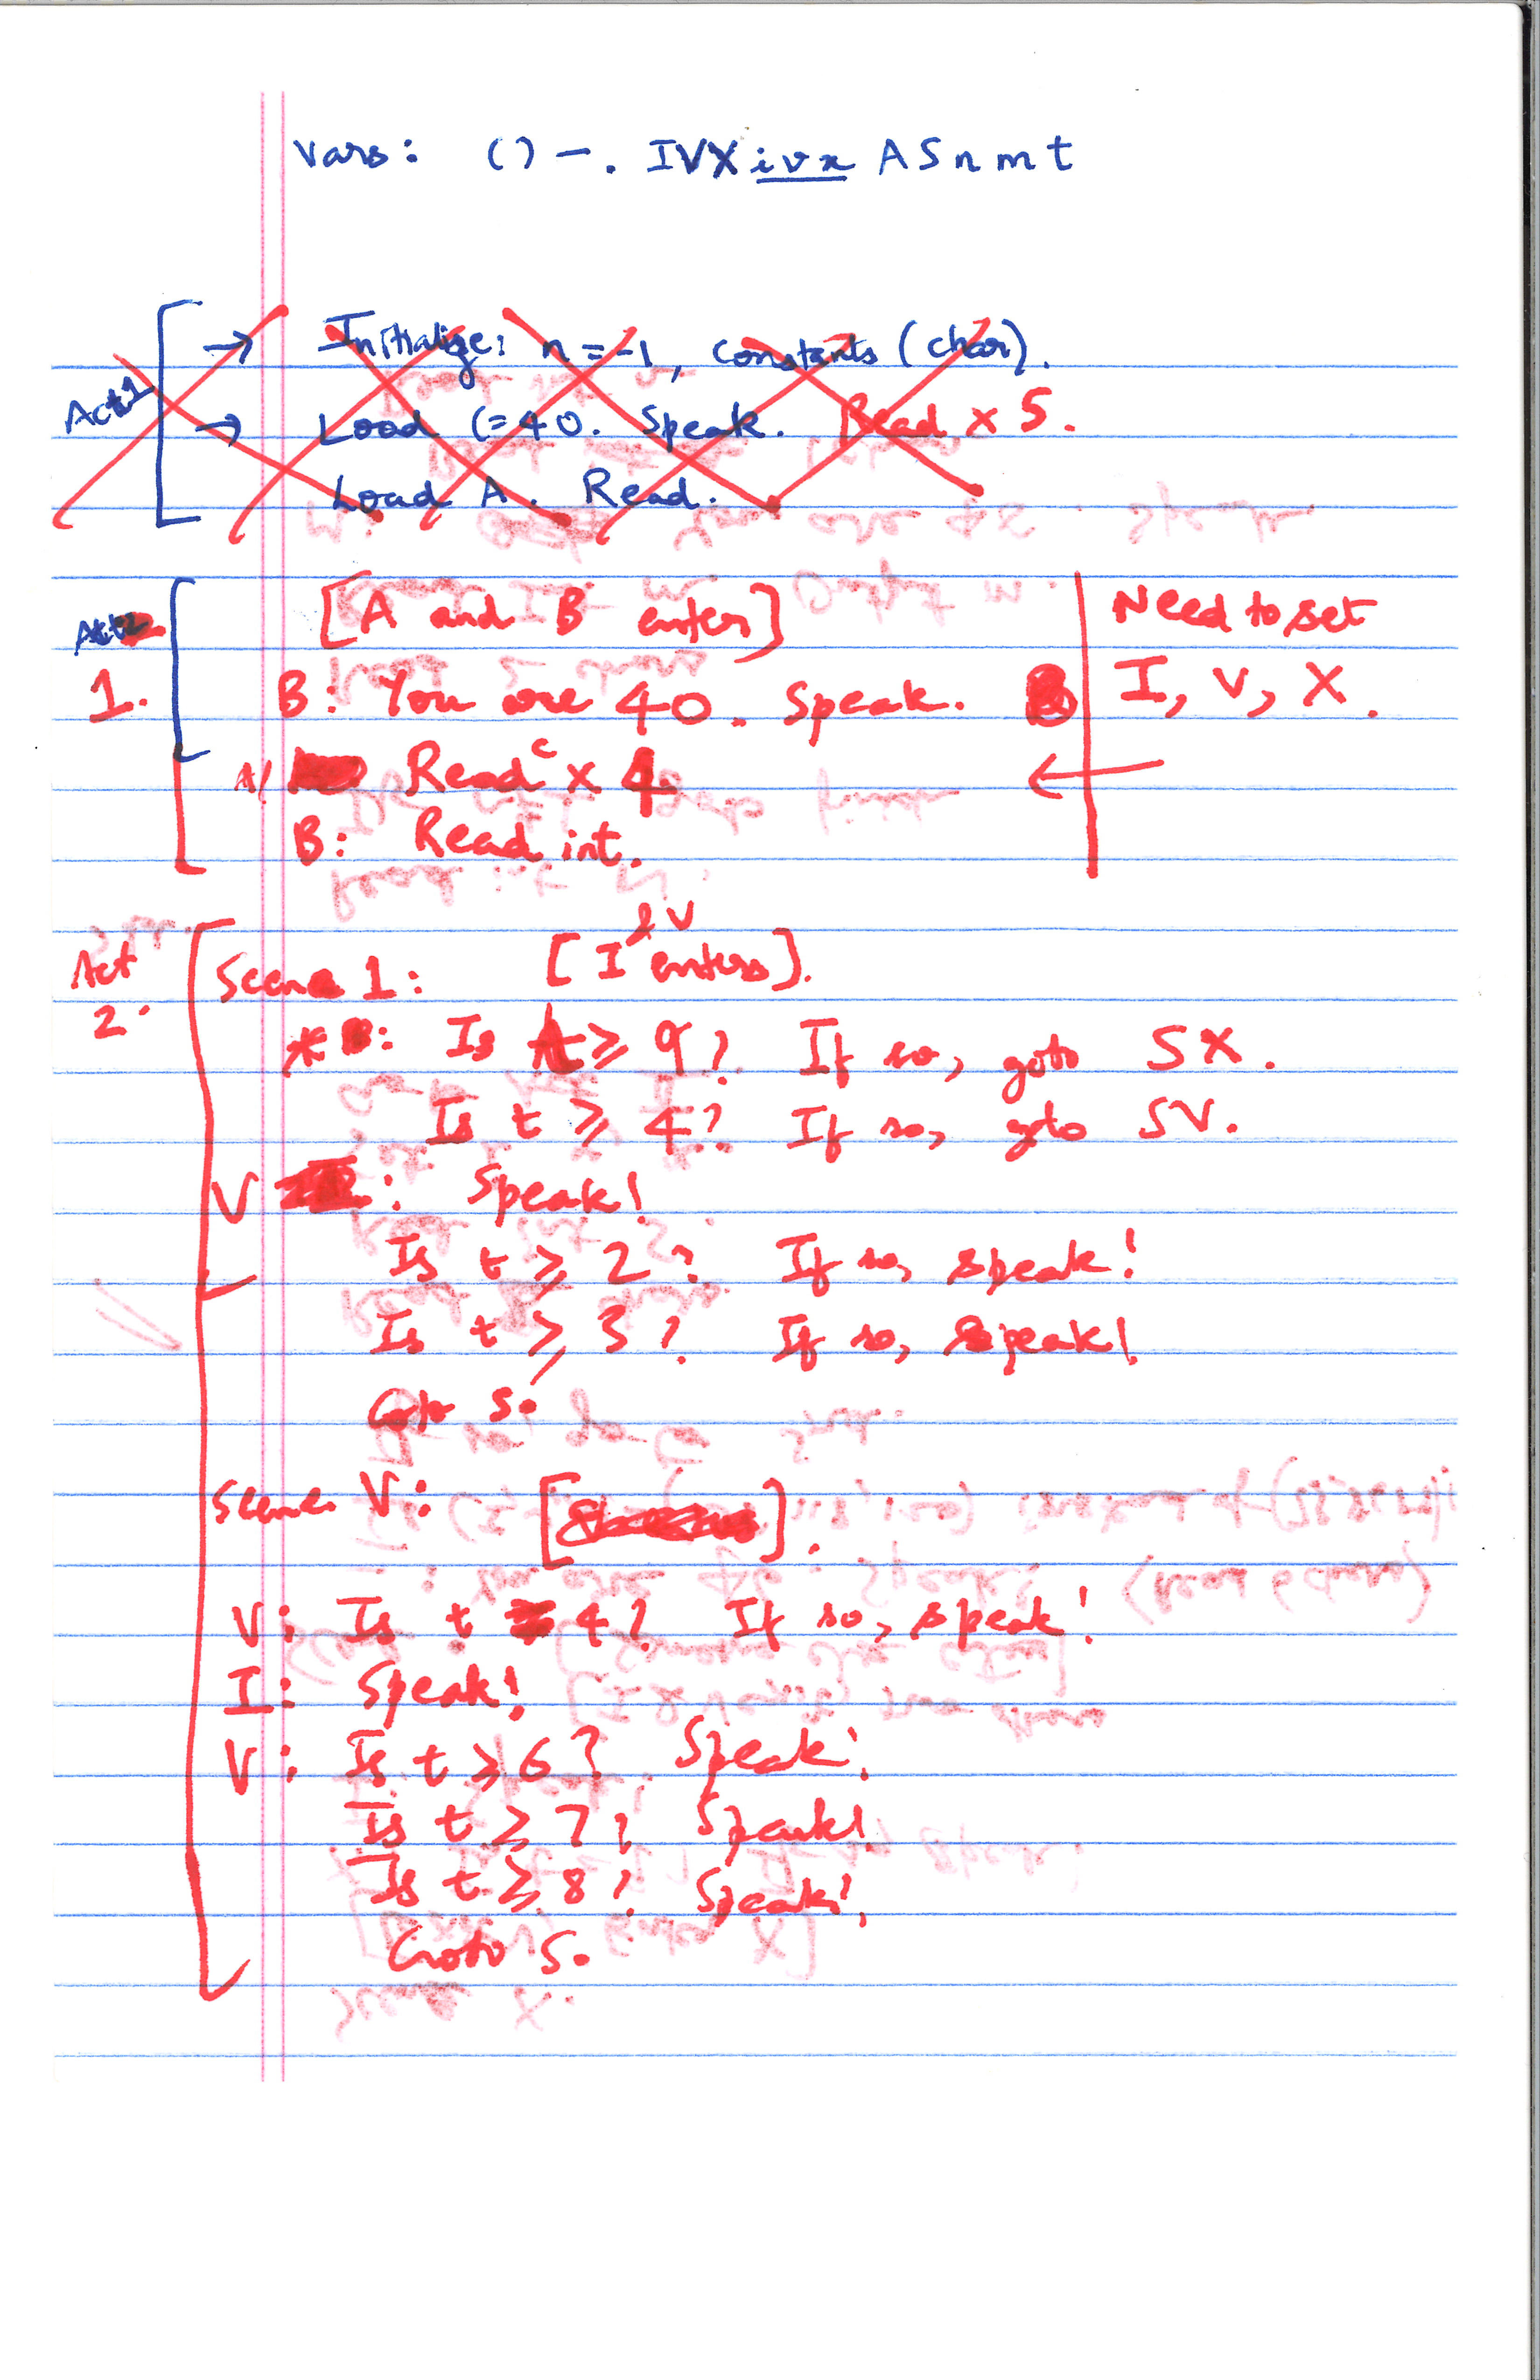 Vars: ( ) - . IVX ivx A S n m t
Act 1
→ Initialize: n = -1, constants (char).
→ Load (=40. Speak. Read x 5.
Load A. Read.
Act
1.
[A and B enter]
B: You are 40. Speak.
A/ Read c x 4.
B: Read int.
Need to set
I, V, X.
←
Act
2.
Scene 1: [I & V enters].
* B: Is t ≥ 9? If so, goto SX.
Is t ≥ 4? If so, goto SV.
V : Speak!
Is t ≥ 2? If so, speak!
Is t ≥ 3? If so, speak!
Goto S.
Scene V: [ ].
V: Is t 4? If so, speak!
I: Speak!
V: Is t ≥ 6? Speak!
Is t ≥ 7? Speak!
Is t ≥ 8? Speak!
Goto S.